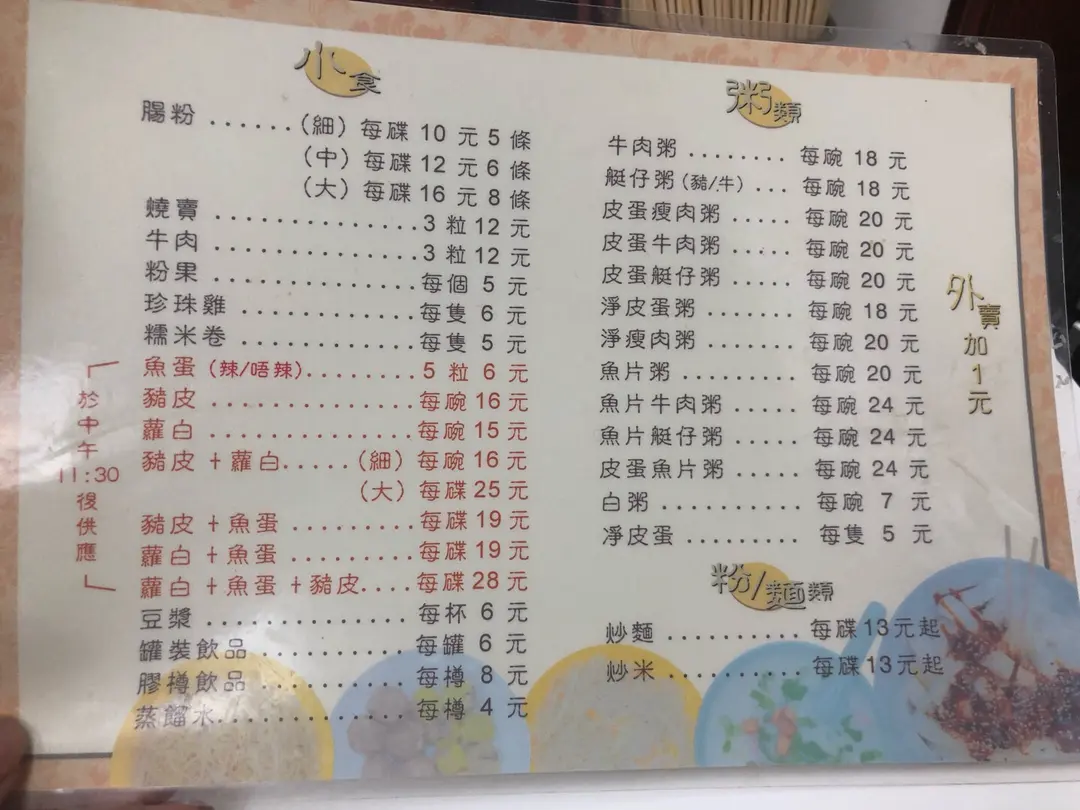 小食
腸粉 ......(細) 每碟 10 元 5 條
(中) 每碟 12 元 6 條
(大) 每碟 16 元 8 條
燒賣 ................3 粒 12 元
牛肉 ................3 粒 12 元
粉果 ................每個 5 元
珍珠雞 .............每隻 6 元
糯米卷 .............每隻 5 元
於中午11:30後供應
魚蛋 (辣/唔辣)........ 5 粒 6 元
豬皮 ................每碗 16 元
蘿白 ................每碗 15 元
豬皮+蘿白.....(細) 每碗 16 元
(大) 每碟 25 元
豬皮+魚蛋 .........每碟 19 元
蘿白+魚蛋 .........每碟 19 元
蘿白+魚蛋+豬皮....每碟 28 元
豆漿 ................每杯 6 元
罐裝飲品 ............每罐 6 元
膠樽飲品 ............每樽 8 元
蒸餾水..............每樽 4 元
粥類
牛肉粥 ........ 每碗 18 元
艇仔粥(豬/牛) ... 每碗 18 元
皮蛋瘦肉粥 ..... 每碗 20 元
皮蛋牛肉粥 ..... 每碗 20 元
皮蛋艇仔粥 ..... 每碗 20 元
淨皮蛋粥 ....... 每碗 18 元
淨瘦肉粥 ....... 每碗 20 元
魚片粥 ........ 每碗 20 元
魚片牛肉粥 ..... 每碗 24 元
魚片艇仔粥 ..... 每碗 24 元
皮蛋魚片粥 ..... 每碗 24 元
白粥 .......... 每碗 7 元
淨皮蛋 ......... 每隻 5 元
粉/麵類
炒麵 .......... 每碟13元起
炒米 .......... 每碟13元起
外賣加1元